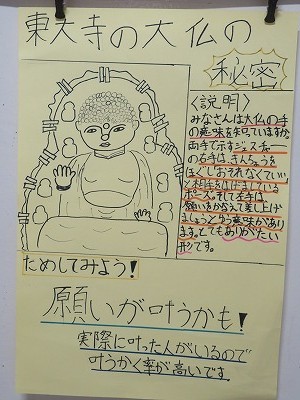 東大寺の大仏の
秘密
〈説明〉
みなさんは大仏の手
の意味を知っていますか
両手で示すジェスチャー
の右手は、きんちょうを
ほぐしおそれなくていい
と相手をはげましている
ポーズ。そして左手は
願いをかなえて差し上げ
ましょうという意味があり
ます。とてもありがたい
形です。
ためしてみよう!
願いが叶うかも!
実際に叶った人がいるので
叶うかく率が高いです